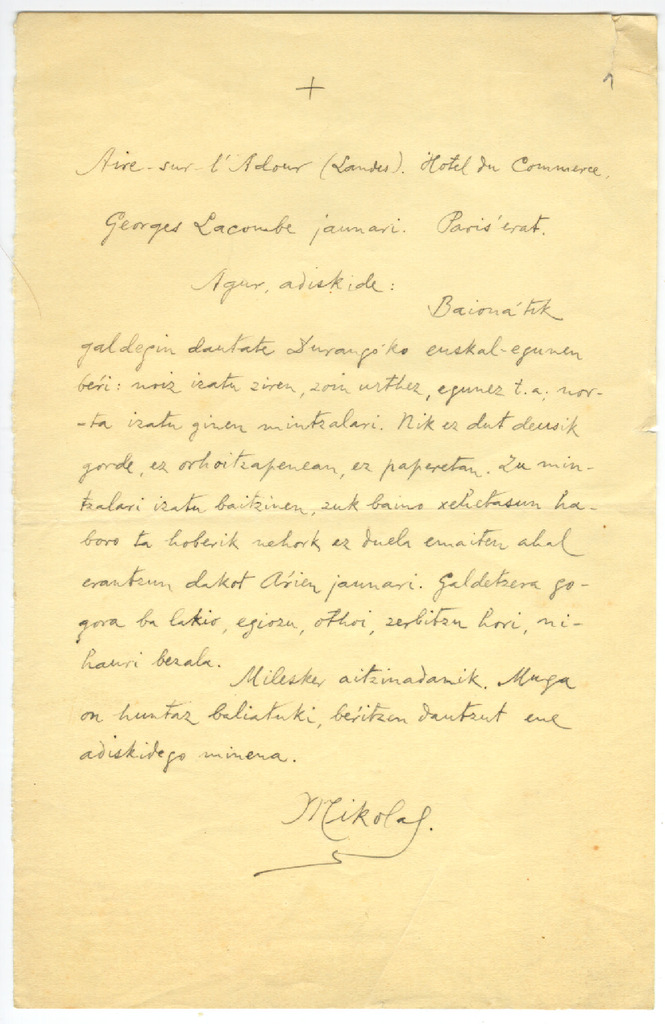 +
Aire-sur-l'Adour (Landes). Hotel du Commerce.
Georges Lacombe jaunari. Paris'erat.
Agur, adiskide:
Baiona'tik
galdegin dautate Durango'ko euskal-egunen
béri: noiz izatu ziren, zoin urthez, egunez t. a; nor-
-ta izatu ginen mintzalari. Nik ez dut deusik
gorde, ez orhoitzapenean, ez paperetan. Zu min-
tzalari izatu baitzinen, zuk baino xehetasun ha-
boro ta hoberik nehork ez duela emaiten ahal
erantzun dakot Árien jaunari. Galdetzera go-
gora ba lakio, egiozu, othoi, zerbitzu hori, ni-
hauri bezala.
Milesker aitzinadanik. Muga
on huntaz baliatuki, béritzen dautzut ene
adiskidego minena.
Mikolas.